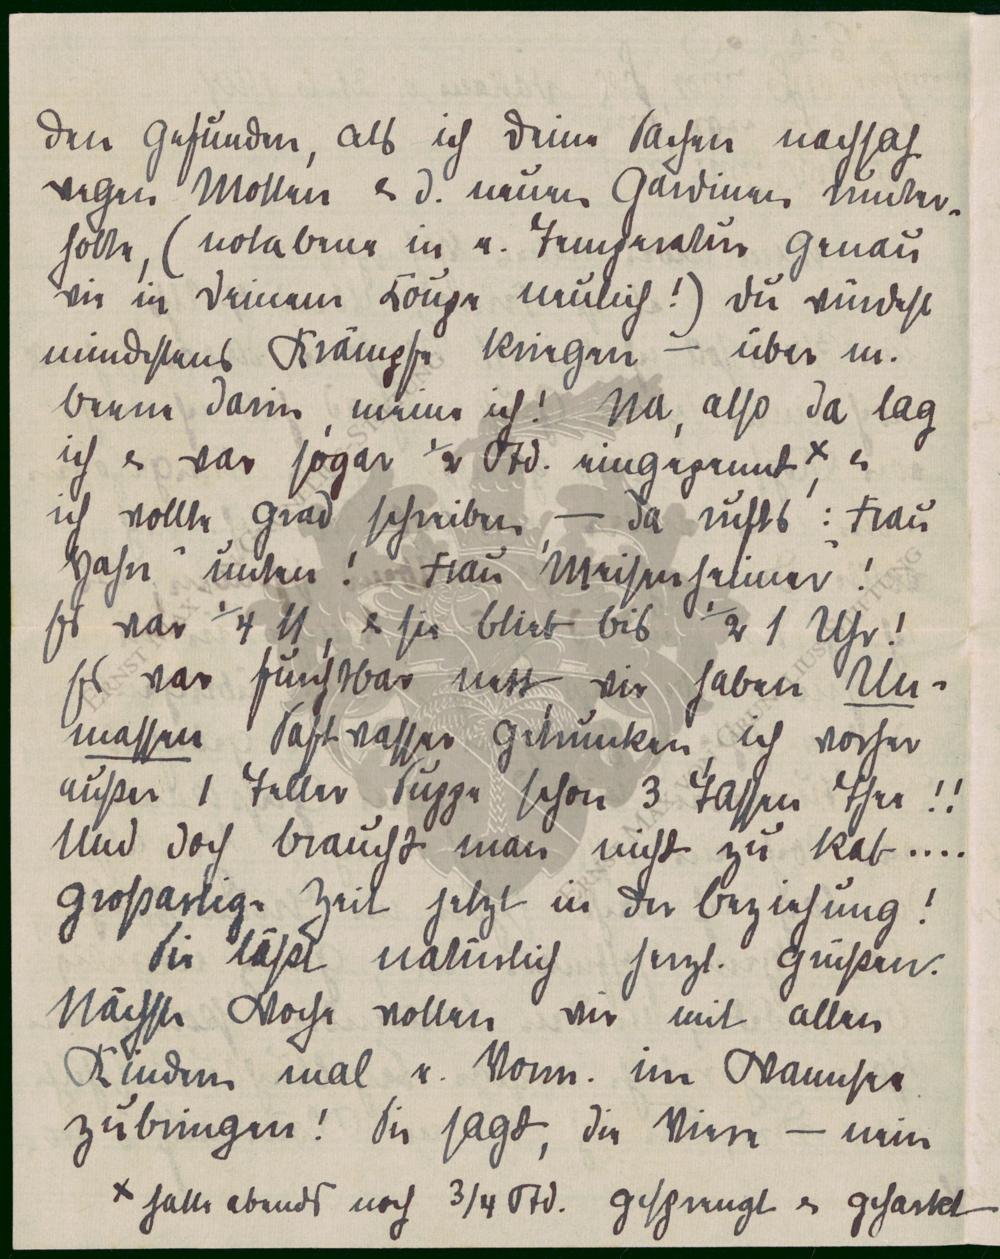 den gefunden, als ich Deine Sachen nachsah
wegen Motten & d. neuen Gardinen runter-
holte, (notabene in e. Temperatur genau
wie in Deinem Coupe neulich!) Du würdest
mindestens Krämpfe kriegen – über m.
beene darin, meine ich! Na, also da lag
ich & war sogar 1/2 Std. eingepennt x, &
ich wollte grad schreiben, — da rufts: Frau
Hahn" unten! Frau Meisenheimer"!
Es war 1/4 11, & sie blieb bis 1/2 1 Uhr!
Es war furchtbar nett, wir haben Un-
massen Saftwasser getrunken, ich vorher
außer 1 Teller Suppe schon 3 Tassen Thee!!
Und doch braucht man nicht zu kat....
großartige Zeit jetzt in der beziehung!
Sie läßt natürlich herzl. grüßen.
Nächste Woche wollen wir mit allen
Kindern mal e. Vorm. im Wannsee
zubringen! Sie sagt, die Viere — nein
x hatte abends noch 3/4 Std. gesprengt & geharkt
ERNST MAX VON GRUNELIUS-STIFTUNG
ERNST MAX VON GRUNELIUS-STIFTUNG